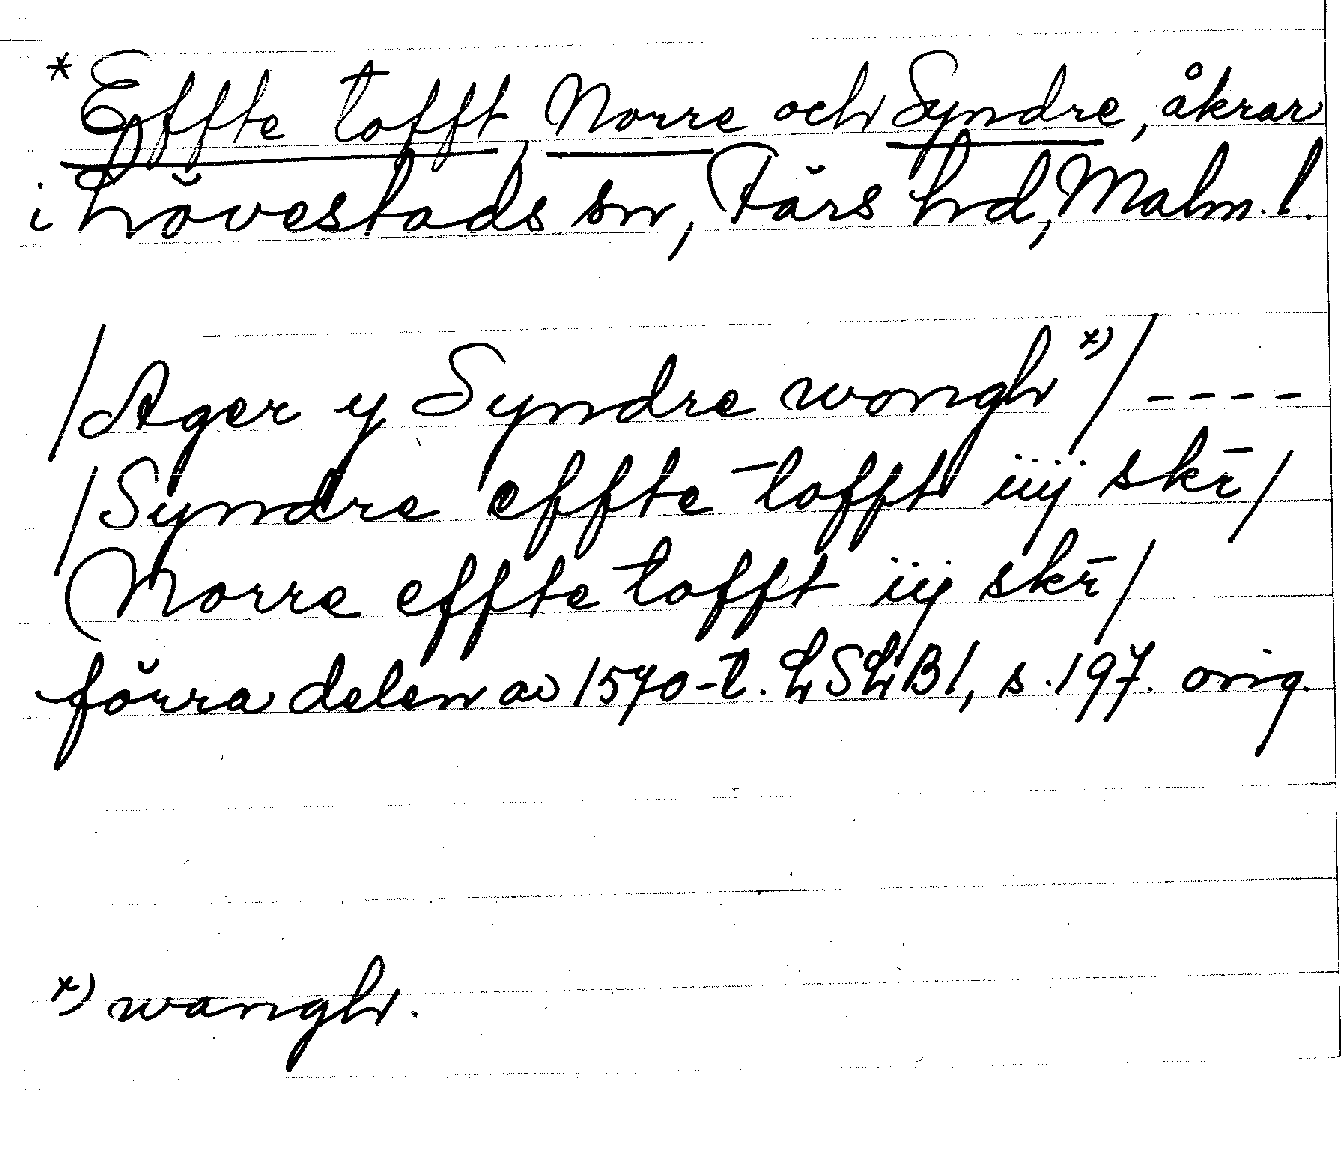 * Effte tofft, Norre och Syndre, åkrar
i Lövestads sn, Färs hd, Malm. l.
/Ager y Syndre wongh x)/ ----
/Syndre effte tofft iiij skr̄/
Norre effte tofft iij skr̄/
förra delen av 1570-t. LSLB1, s. 197. orig.
x) wangh.